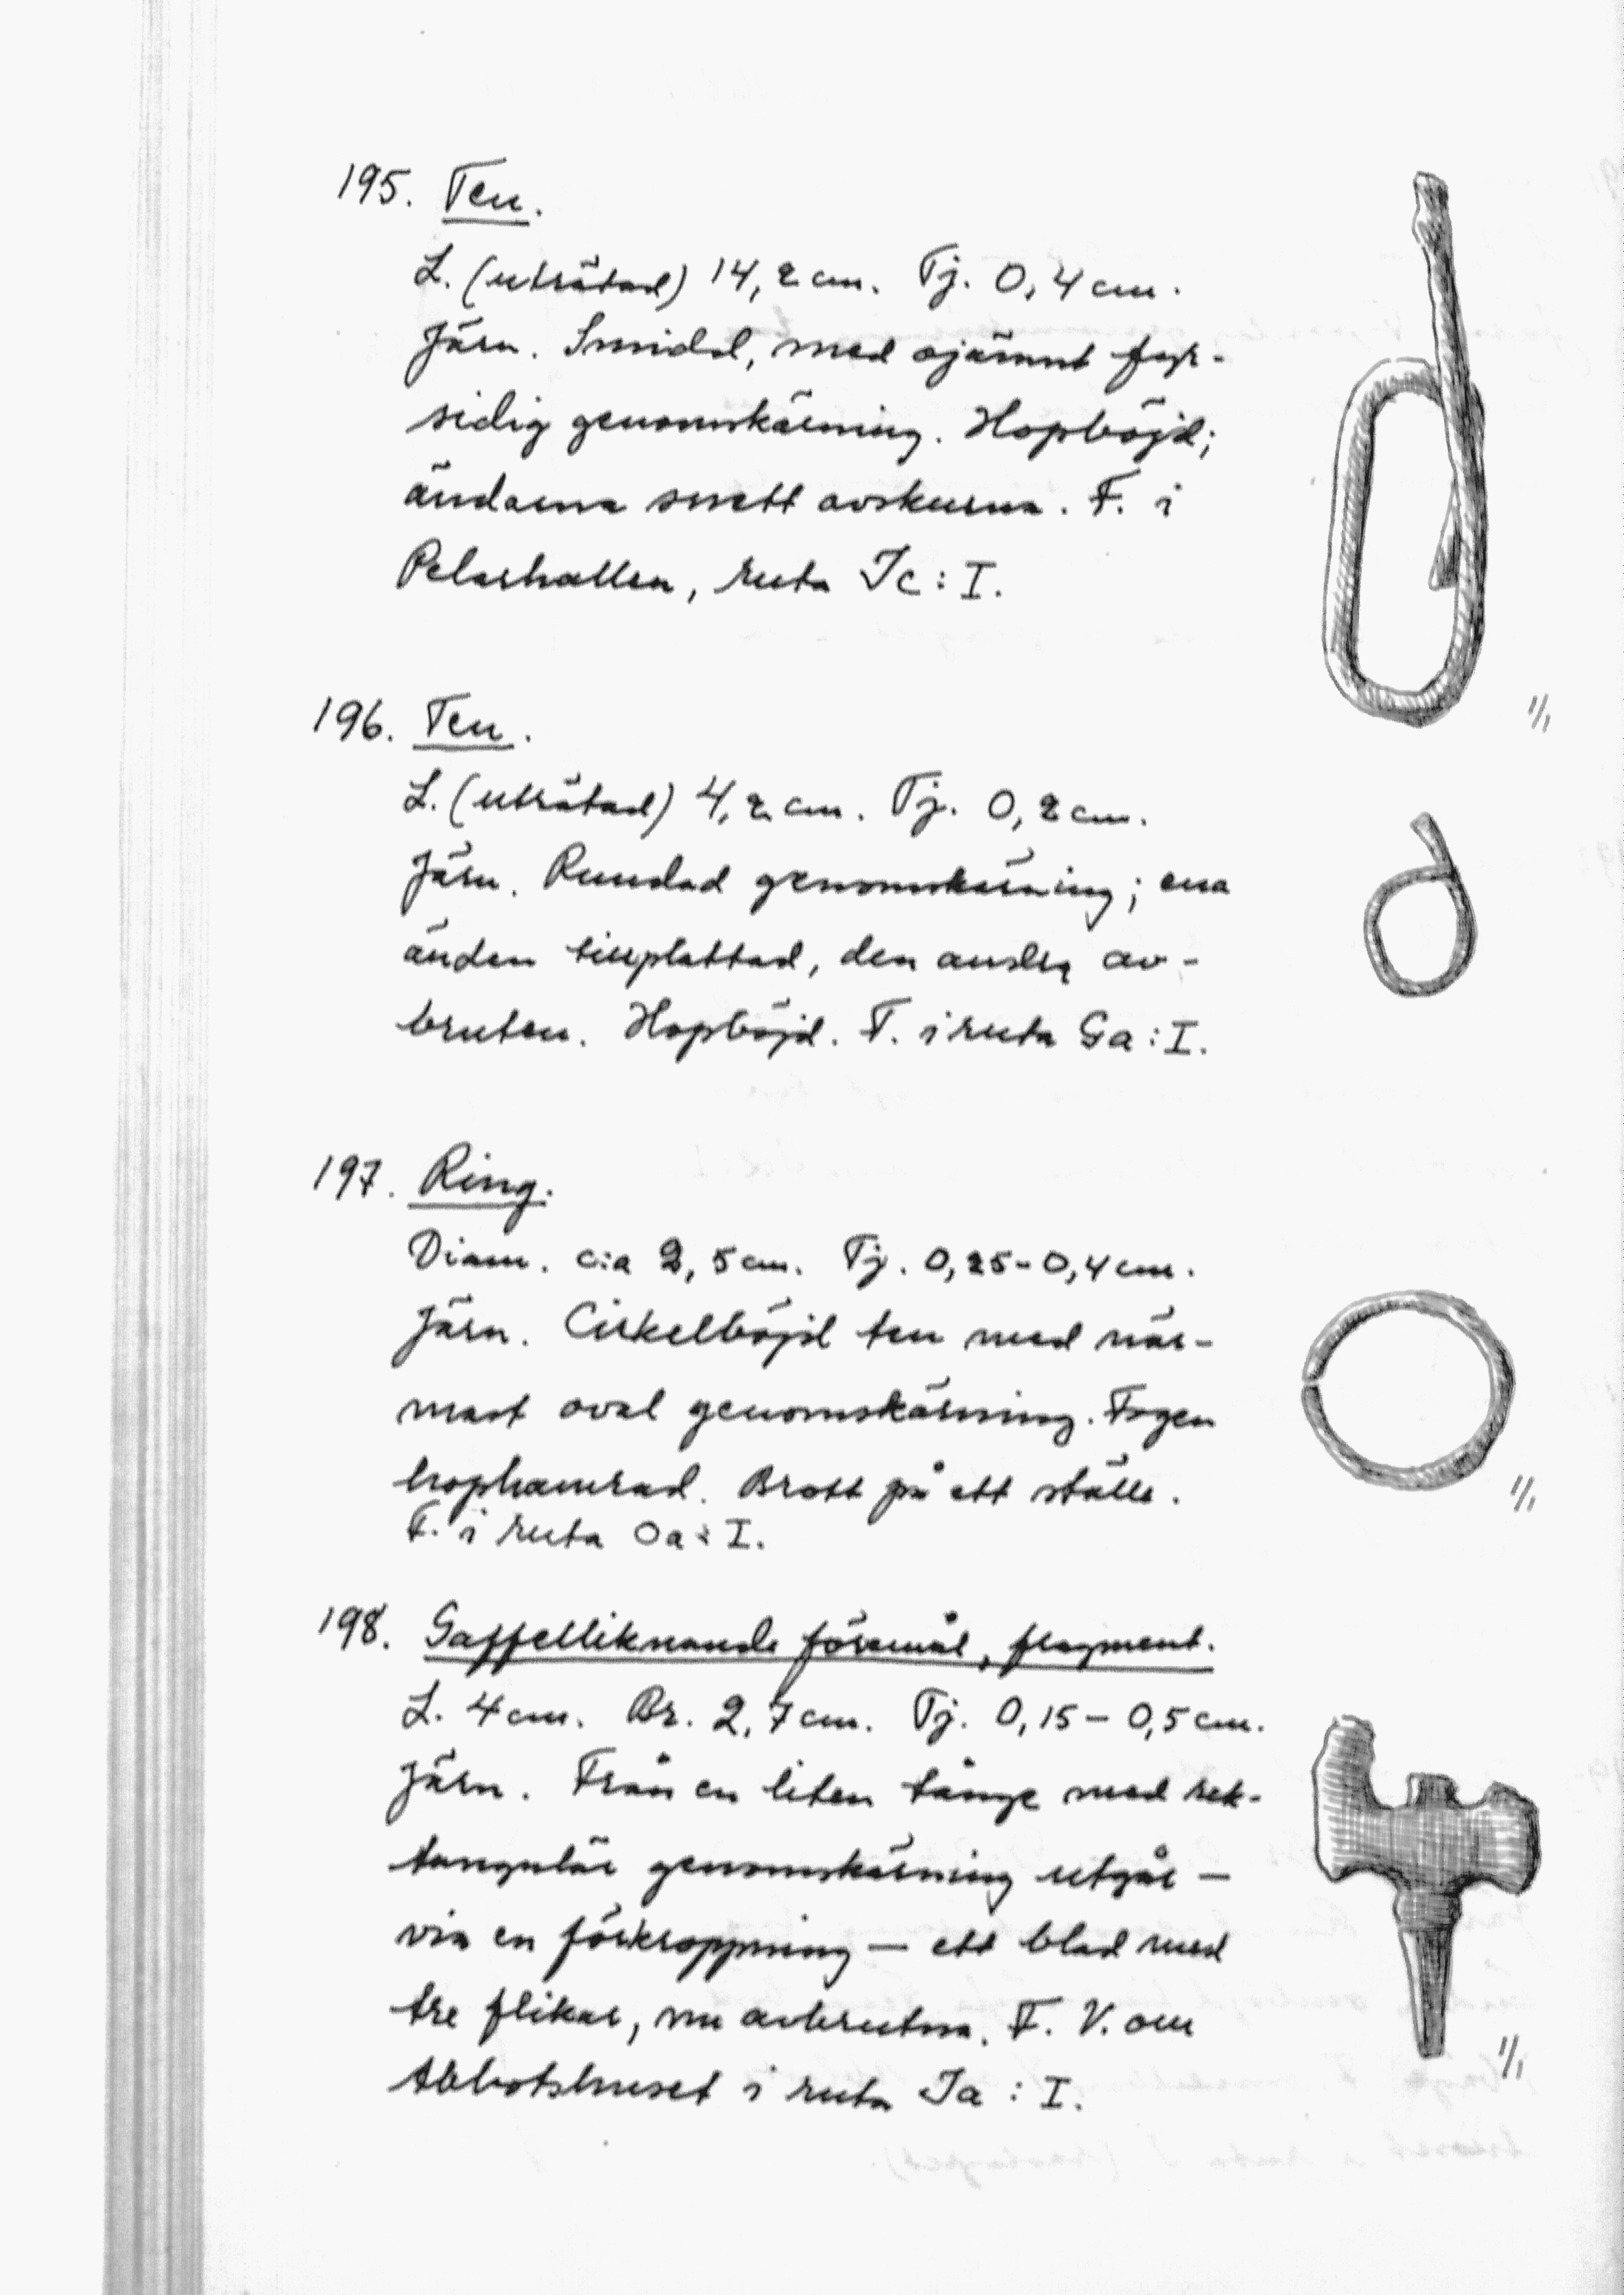 195. Ten.
L. (uträtad) 14,2 cm. Tj. 0,4 cm.
Järn. Smidd, med ojämnt fyr-
sidig genomskärning. Hopböjd;
ändarna snett avskurna. F. i
Pelarhallen, ruta Ic : I.
1/1
196. Ten.
L. (uträtad) 4,2 cm. Tj. 0,2 cm.
Järn. Rundad genomskärning; ena
änden tillplattad, den andra av-
bruten. Hopböjd. F. i ruta Ga : I.
197. Ring.
Diam. c:a 2,5 cm. Tj. 0,25-0,4 cm.
Järn. Cirkelböjd ten med när-
mast oval genomskärning. Fogen
hophamrad. Brott på ett ställe.
1/1
F. i ruta Oa : I.
198. Gaffelliknande föremål, fragment.
L. 4 cm. Br. 2,7 cm. Tj. 0,15 – 0,5 cm.
Järn. Från en liten tånge med rek-
tangulär genomskärning utgår –
via en förkroppning – ett blad med
tre flikar, nu avbrutna. F. V. om
Abbotshuset i ruta Ia : I.
1/1